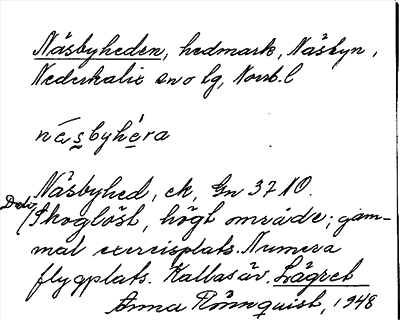 Näsbyheden, hedmark, Näsbyn,
Nederkalix sn o lg, Norrb.l
näsbyhéra
Näsbyhed, ek, Gn 37 NO.
Delv. Skoglöst, högt område; gam-
mal exercisplats. Numera
flygplats. Kallas äv. Lägret
Anna Rönnquist, 1948